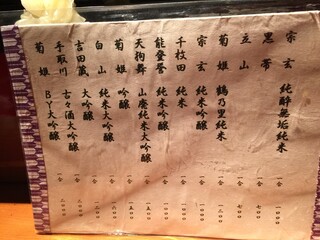 宗玄 純酔無垢純米 一合 一〇〇〇
黒帯 一合 七〇〇
立山 一合 七〇〇
菊姫 鶴乃里純米 一合
宗玄 純米吟醸 一合
千枚田 純米 一合
能登誉 純米 一合
天狗舞 山廃純米大吟醸 一合 一五〇〇
菊姫 吟醸 一合 一五〇〇
白山 純米大吟醸 一合
吉田蔵 大吟醸 一合
手取川 古々酒大吟醸 一合 二〇〇〇
菊姫 BY大吟醸 一合 三〇〇〇